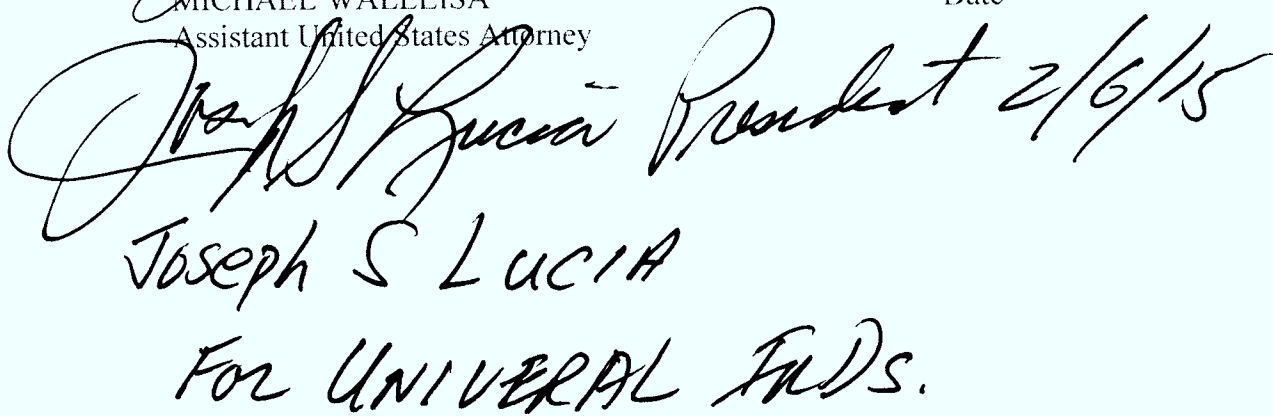 MICHAEL WALLEISA Date
Assistant United States Attorney
Joseph S Lucia President 2/6/15
Joseph S LUCIA
FOR UNIVERAL INDs.